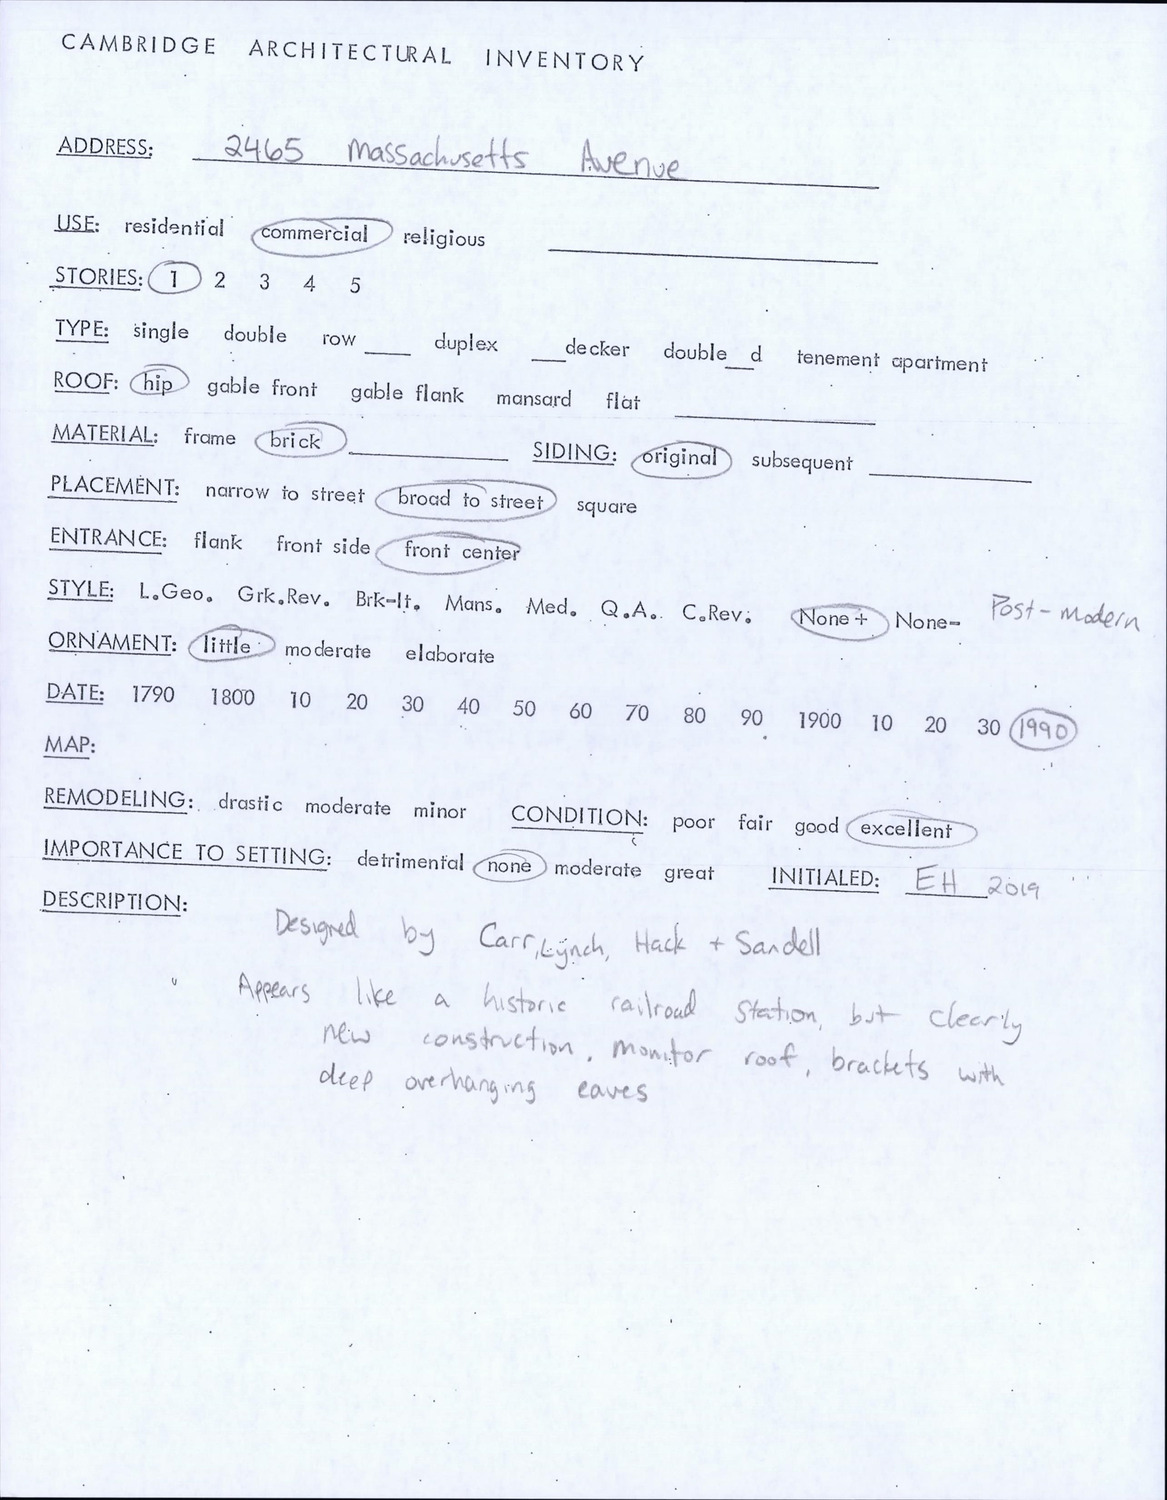 CAMBRIDGE ARCHITECTURAL INVENTORY
ADDRESS: 2465 Massachusetts Avenue
USE: residential commercial religious
STORIES: 1 2 3 4 5
TYPE: single double row ____ duplex ___decker double__d tenement apartment
ROOF: hip gable front gable flank mansard flat
MATERIAL: frame brick SIDING: original subsequent
PLACEMENT: narrow to street broad to street square
ENTRANCE: flank front side front center
STYLE: L.Geo. Grk.Rev. Brk-It. Mans. Med. Q.A. C.Rev. None+ None- Post-modern
ORNAMENT: little moderate elaborate
DATE: 1790 1800 10 20 30 40 50 60 70 80 90 1900 10 20 30 1990
MAP:
REMODELING: drastic moderate minor CONDITION: poor fair good excellent
IMPORTANCE TO SETTING: detrimental none moderate great INITIALED: EH 2019
DESCRIPTION:
Designed by Carr, Lynch, Hack + Sandell
Appears like a historic railroad station, but clearly
new construction. monitor roof, brackets with
deep overhanging eaves